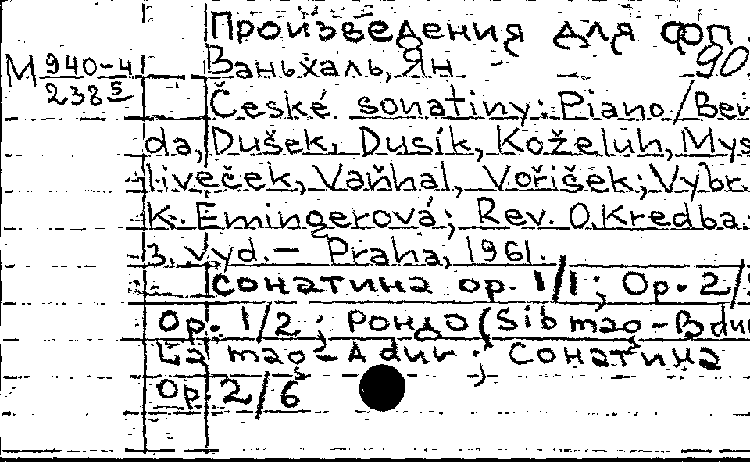 Произведения для фп.
М 940-4
Ваньхаль, Ян 90.
238 5
České sonatiny: Piano/Ben
da, Dušek, Dusík, Koželuh, Mys
liveček, Vaňhal, Voříšek; Vybr.
K. Emingerová; Rev. O. Kredba.
3. vyd. — Praha, 1961.
Сонатина ор. 1/1; Ор. 2/
Ор. 1/2; Рондо (Sib mag - B dur
La mag - A dur; Сонатина
Ор. 2/6